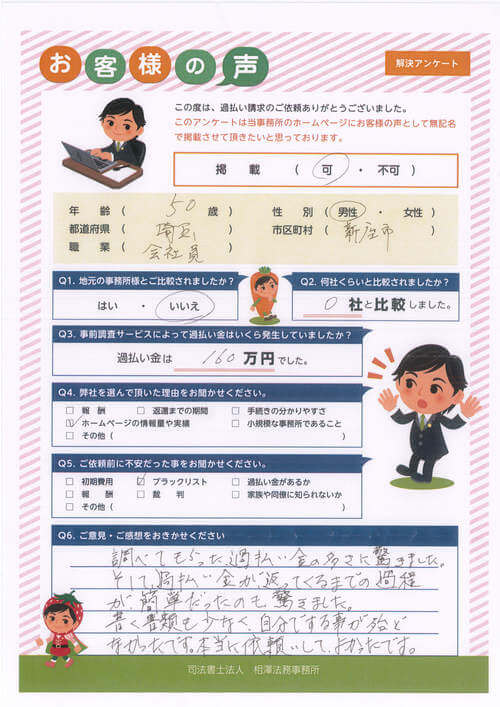 お客様の声
解決アンケート
この度は、過払い請求のご依頼ありがとうございました。
このアンケートは当事務所のホームページにお客様の声として無記名
で掲載させて頂きたいと思っております。
掲載 ( 可 ・ 不可 )
年齢 ( 50 歳 ) 性別 ( 男性 ・ 女性 )
都道府県 ( 埼玉 ) 市区町村 ( 新座市 )
職業 ( 会社員 )
Q1. 地元の事務所様とご比較されましたか?
はい ・ いいえ
Q2. 何社くらいと比較されましたか?
0 社と比較しました。
Q3. 事前調査サービスによって過払い金はいくら発生していましたか?
過払い金は 160 万円でした。
Q4. 弊社を選んで頂いた理由をお聞かせください。
□ 報酬 □ 返還までの期間 □ 手続きの分かりやすさ
☑ ホームページの情報量や実績 □ 小規模な事務所であること
□ その他 ( )
Q5. ご依頼前に不安だった事をお聞かせください。
□ 初期費用 ☑ ブラックリスト □ 過払い金があるか
□ 報酬 □ 裁判 □ 家族や同僚に知られないか
□ その他 ( )
Q6. ご意見・ご感想をおきかせください
調べてもらった、過払い金の多さに驚きました。
そして、過払い金が返ってくるまでの過程
が、簡単だったのも驚きました。
書く書類も少なく、自分でする事が殆ど
なかったです。本当に依頼して、よかったです。
司法書士法人 相澤法務事務所